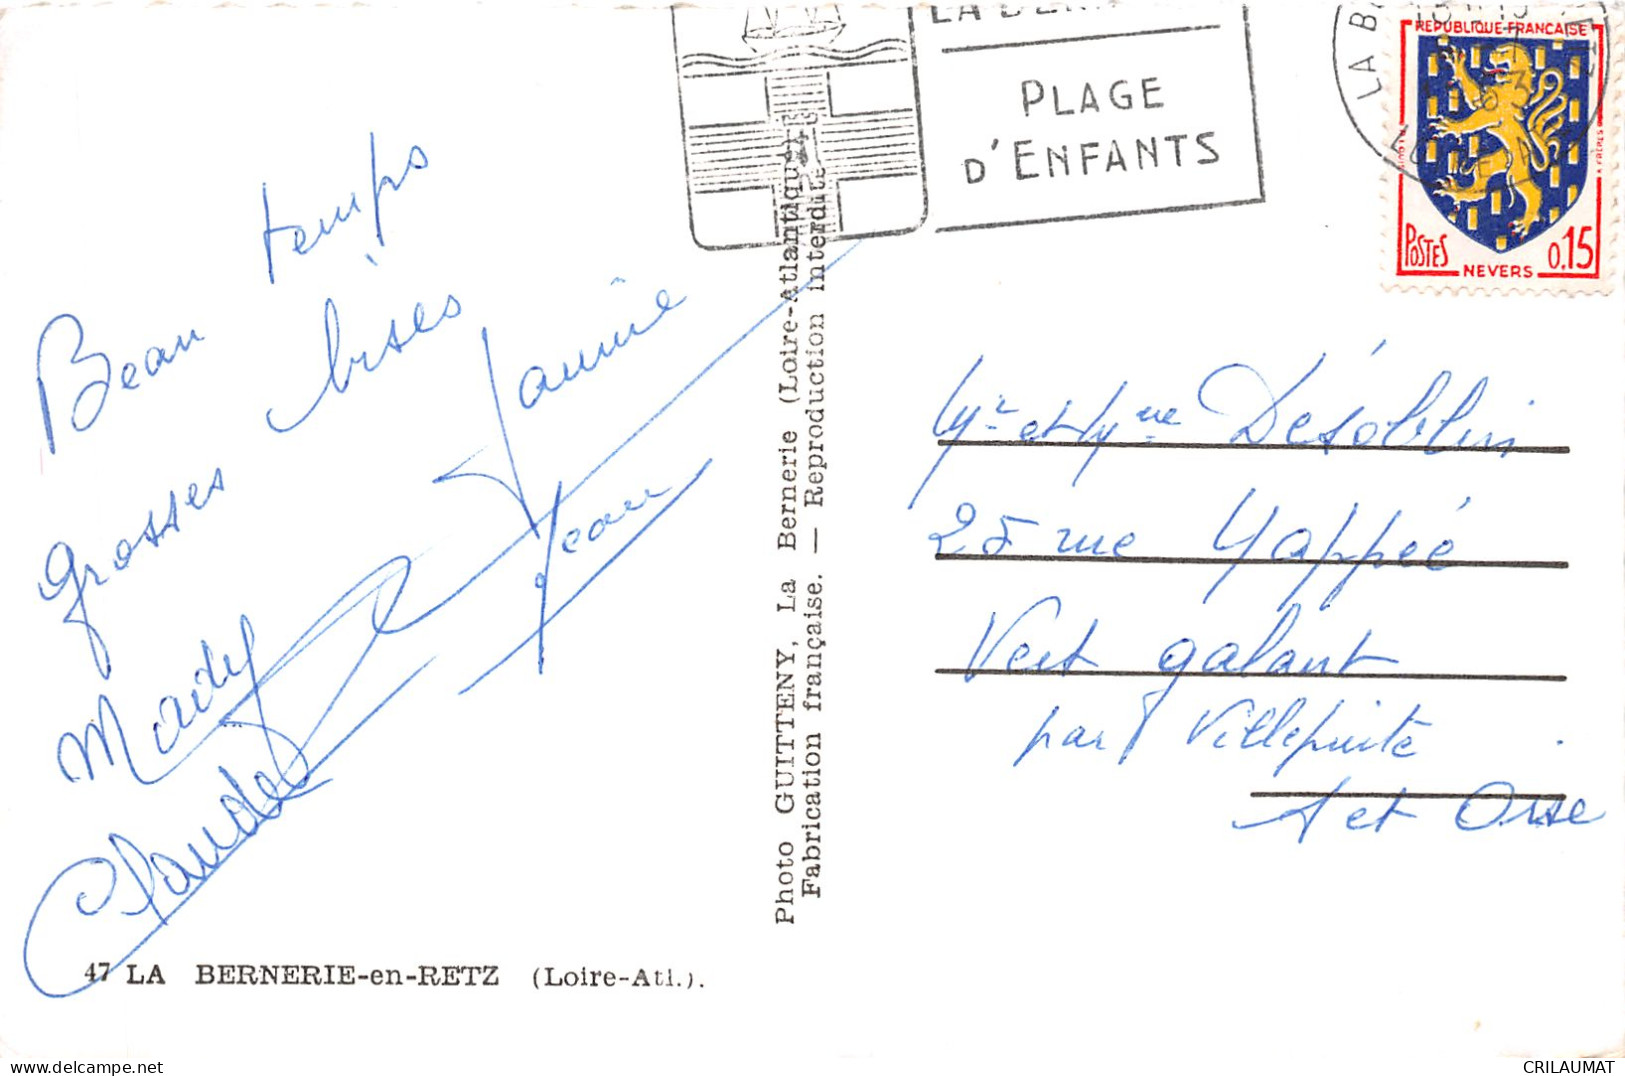 PLAGE
D'ENFANTS
LA B
REPUBLIQUE-FRANCAISE
POSTES
0.15
NEVERS
Beau temps
grosses bises
Janine
Jean
Mady
Claude
Photo GUITTENY, La Bernerie (Loire-atlantique)
Fabrication française. — Reproduction interdite
Mr et Mme Désoblin
25 rue Yappéé
Vert galant
par Villepinte
S et Oise
47 LA BERNERIE-en-RETZ (Loire-Atl.).
CRILAUMAT
delcampe.net